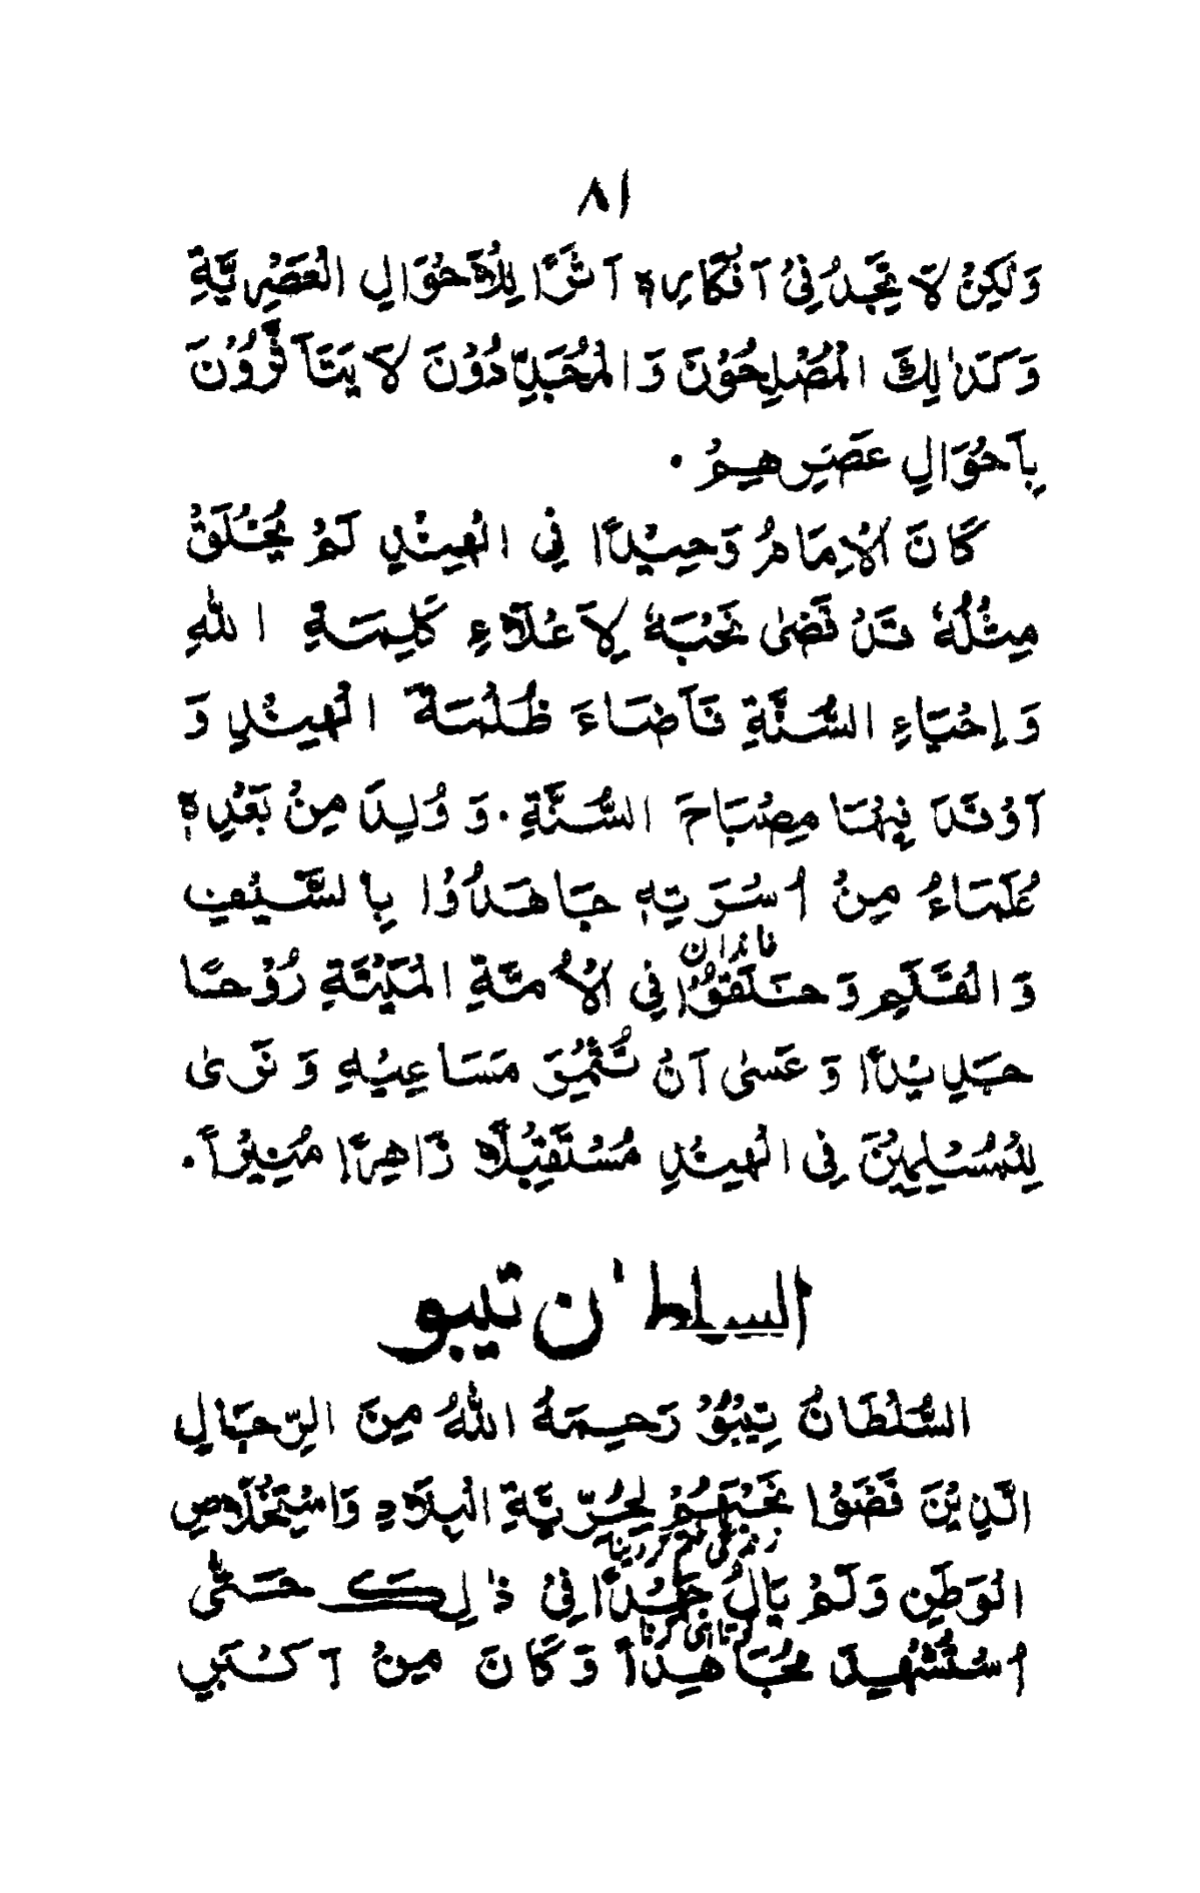 ٨١
وَلٰكِنْ لَا تَجِدُ فِيْ اَفْكَارِهٖ اَثَرًا لِلْاَحْوَالِ الْعَصْرِيَّةِ
وَكَذٰلِكَ الْمُصْلِحُوْنَ وَالْمُجَدِّدُوْنَ لَا يَتَاَثَّرُوْنَ
بِاَحْوَالِ عَصْرِهِمْ ۰
كَانَ الْاِمَامُ وَحِيْدًا فِي الْهِنْدِ لَمْ يُخْلَقْ
مِثْلُهٗ قَدْ قَضٰى نَحْبَهٗ لِاَعْلَاءِ كَلِمَةِ اللّٰهِ
وَاِحْيَاءِ السُّنَّةِ فَاَضَاءَ ظُلْمَةَ الْهِنْدِ وَ
اَوْقَدَ فِيْهَا مِصْبَاحَ السُّنَّةِ ۰ وَ وُلِدَ مِنْ بَعْدِهٖ
عُلَمَاءُ مِنْ اُسْرَتِهٖ جَاهَدُوْا بِالسَّيْفِ
خاندان
وَالْقَلَمِ وَخَلَقُوْا فِي الْاُمَّةِ الْمَيِّتَةِ رُوْحًا
جَدِيْدًا وَ عَسٰى اَنْ تُثْمِرَ مَسَاعِيْهِ وَ نَرٰى
لِلْمُسْلِمِيْنَ فِى الْهِنْدِ مُسْتَقْبِلًا زَاهِرًا مُنِيْرًا ۰
السلطان تيبو
السُّلْطَانُ تِيْبُوْ رَحِمَهُ اللّٰهُ مِنَ الرِّجَالِ
الَّذِيْنَ قَضَوْا نَحْبَهُمْ لِحُرِّيَّةِ الْبِلَادِ وَاسْتِخْلَاصِ
زندگی ختم کردینا
الْوَطَنِ وَلَمْ يَالُ جُهْدًا فِيْ ذٰلِكَ حَتّٰى
کوتاہی کرنا
اُسْتُشْهِدَ مُجَاهِدًا وَكَانَ مِنْ اَكْبَرِ